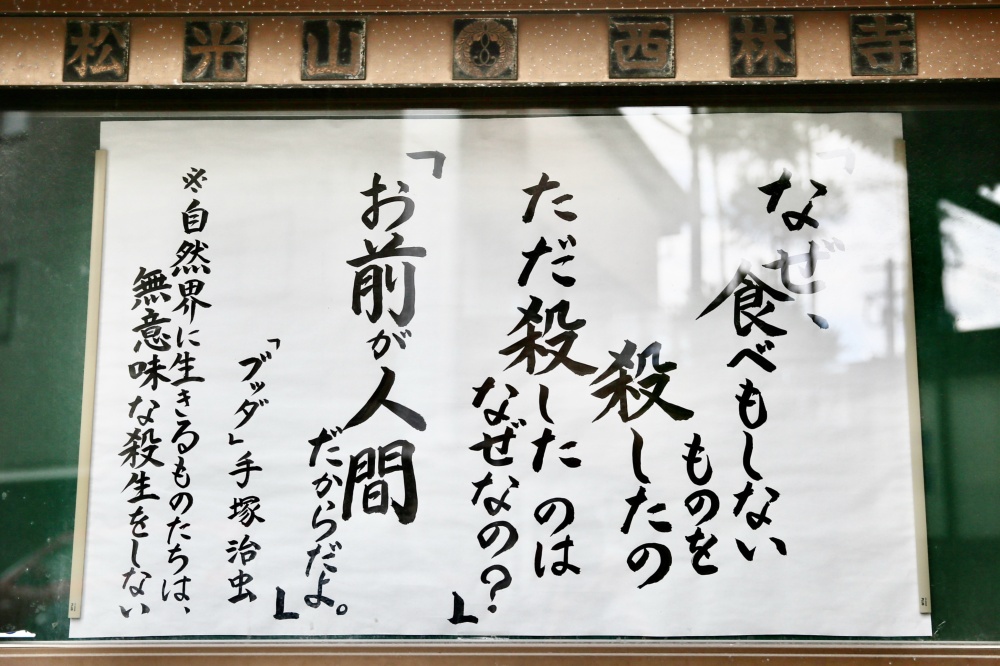 松光山 西林寺
「なぜ、食べもしない
ものを
殺したの
ただ殺したのは
なぜなの？」
「お前が人間
だからだよ。」
「ブッダ」手塚治虫
※自然界に生きるものたちは、
無意味な殺生をしない